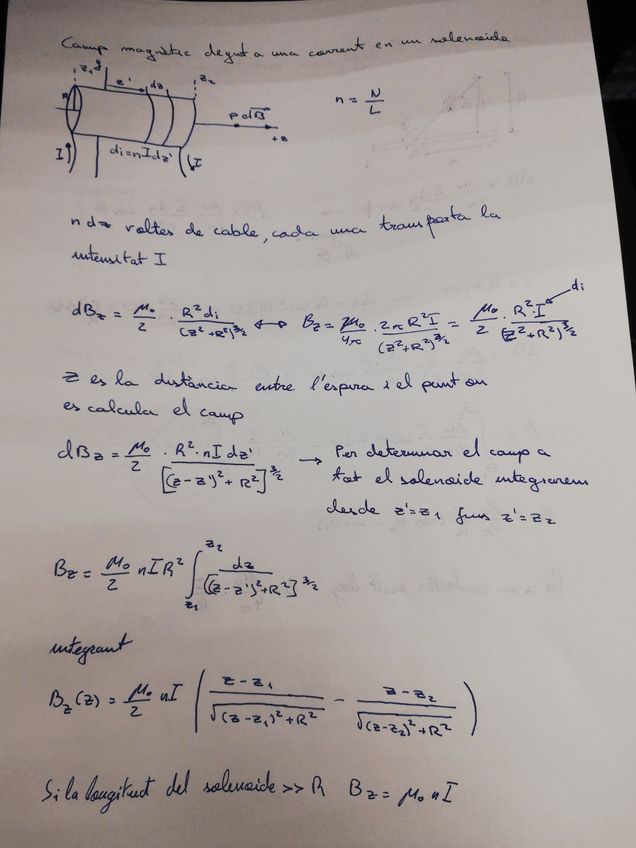 Camp magnètic degut a una corrent en un solenoide
z₁ y z' dz z₂
R P dB⃗ +z
n = N/L
I di = nIdz' I
n dz voltes de cable, cada una transporta la
intensitat I
dBz = μ₀/2 · R²di/(z²+R²)^3/2 ↔ Bz = μ₀/4π · 2πR²I/(z²+R²)^3/2 = μ₀/2 · R²·I/(z²+R²)^3/2 di
z es la distància entre l'espira i el punt on
es calcula el camp
dBz = μ₀/2 · R²·nIdz'/[(z-z')²+R²]^3/2 → Per determinar el camp a
tot el solenoide integrarem
desde z'=z₁ fins z'=z₂
Bz = μ₀/2 nIR² ∫_z₁^z₂ dz/[(z-z')²+R²]^3/2
integrant
Bz(z) = μ₀/2 nI ( (z-z₁)/√((z-z₁)²+R²) - (z-z₂)/√((z-z₂)²+R²) )
Si la longitud del solenoide >> R Bz = μ₀nI